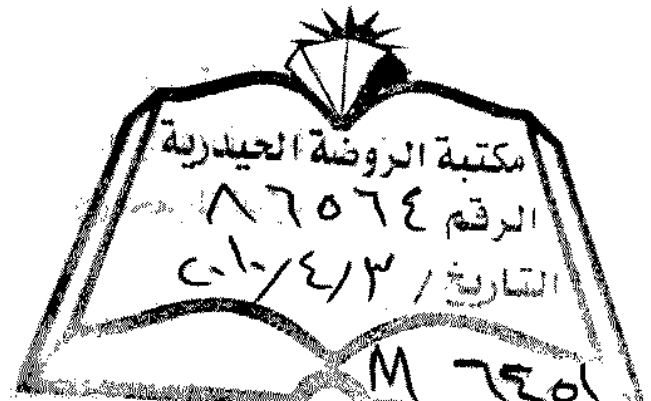 مكتبة الروضة الحيدرية
الرقم ٨٦٥٦٤
التاريخ / ٣/٤/٢٠١٠